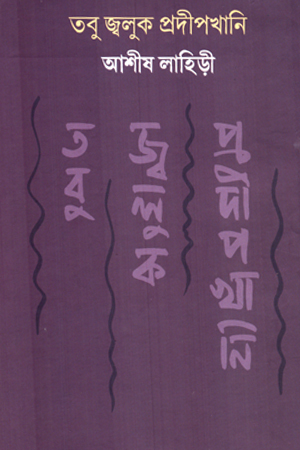 তবু জ্বলুক প্রদীপখানি
আশীষ লাহিড়ী
তবু
জ্বলুক
প্রদীপখানি